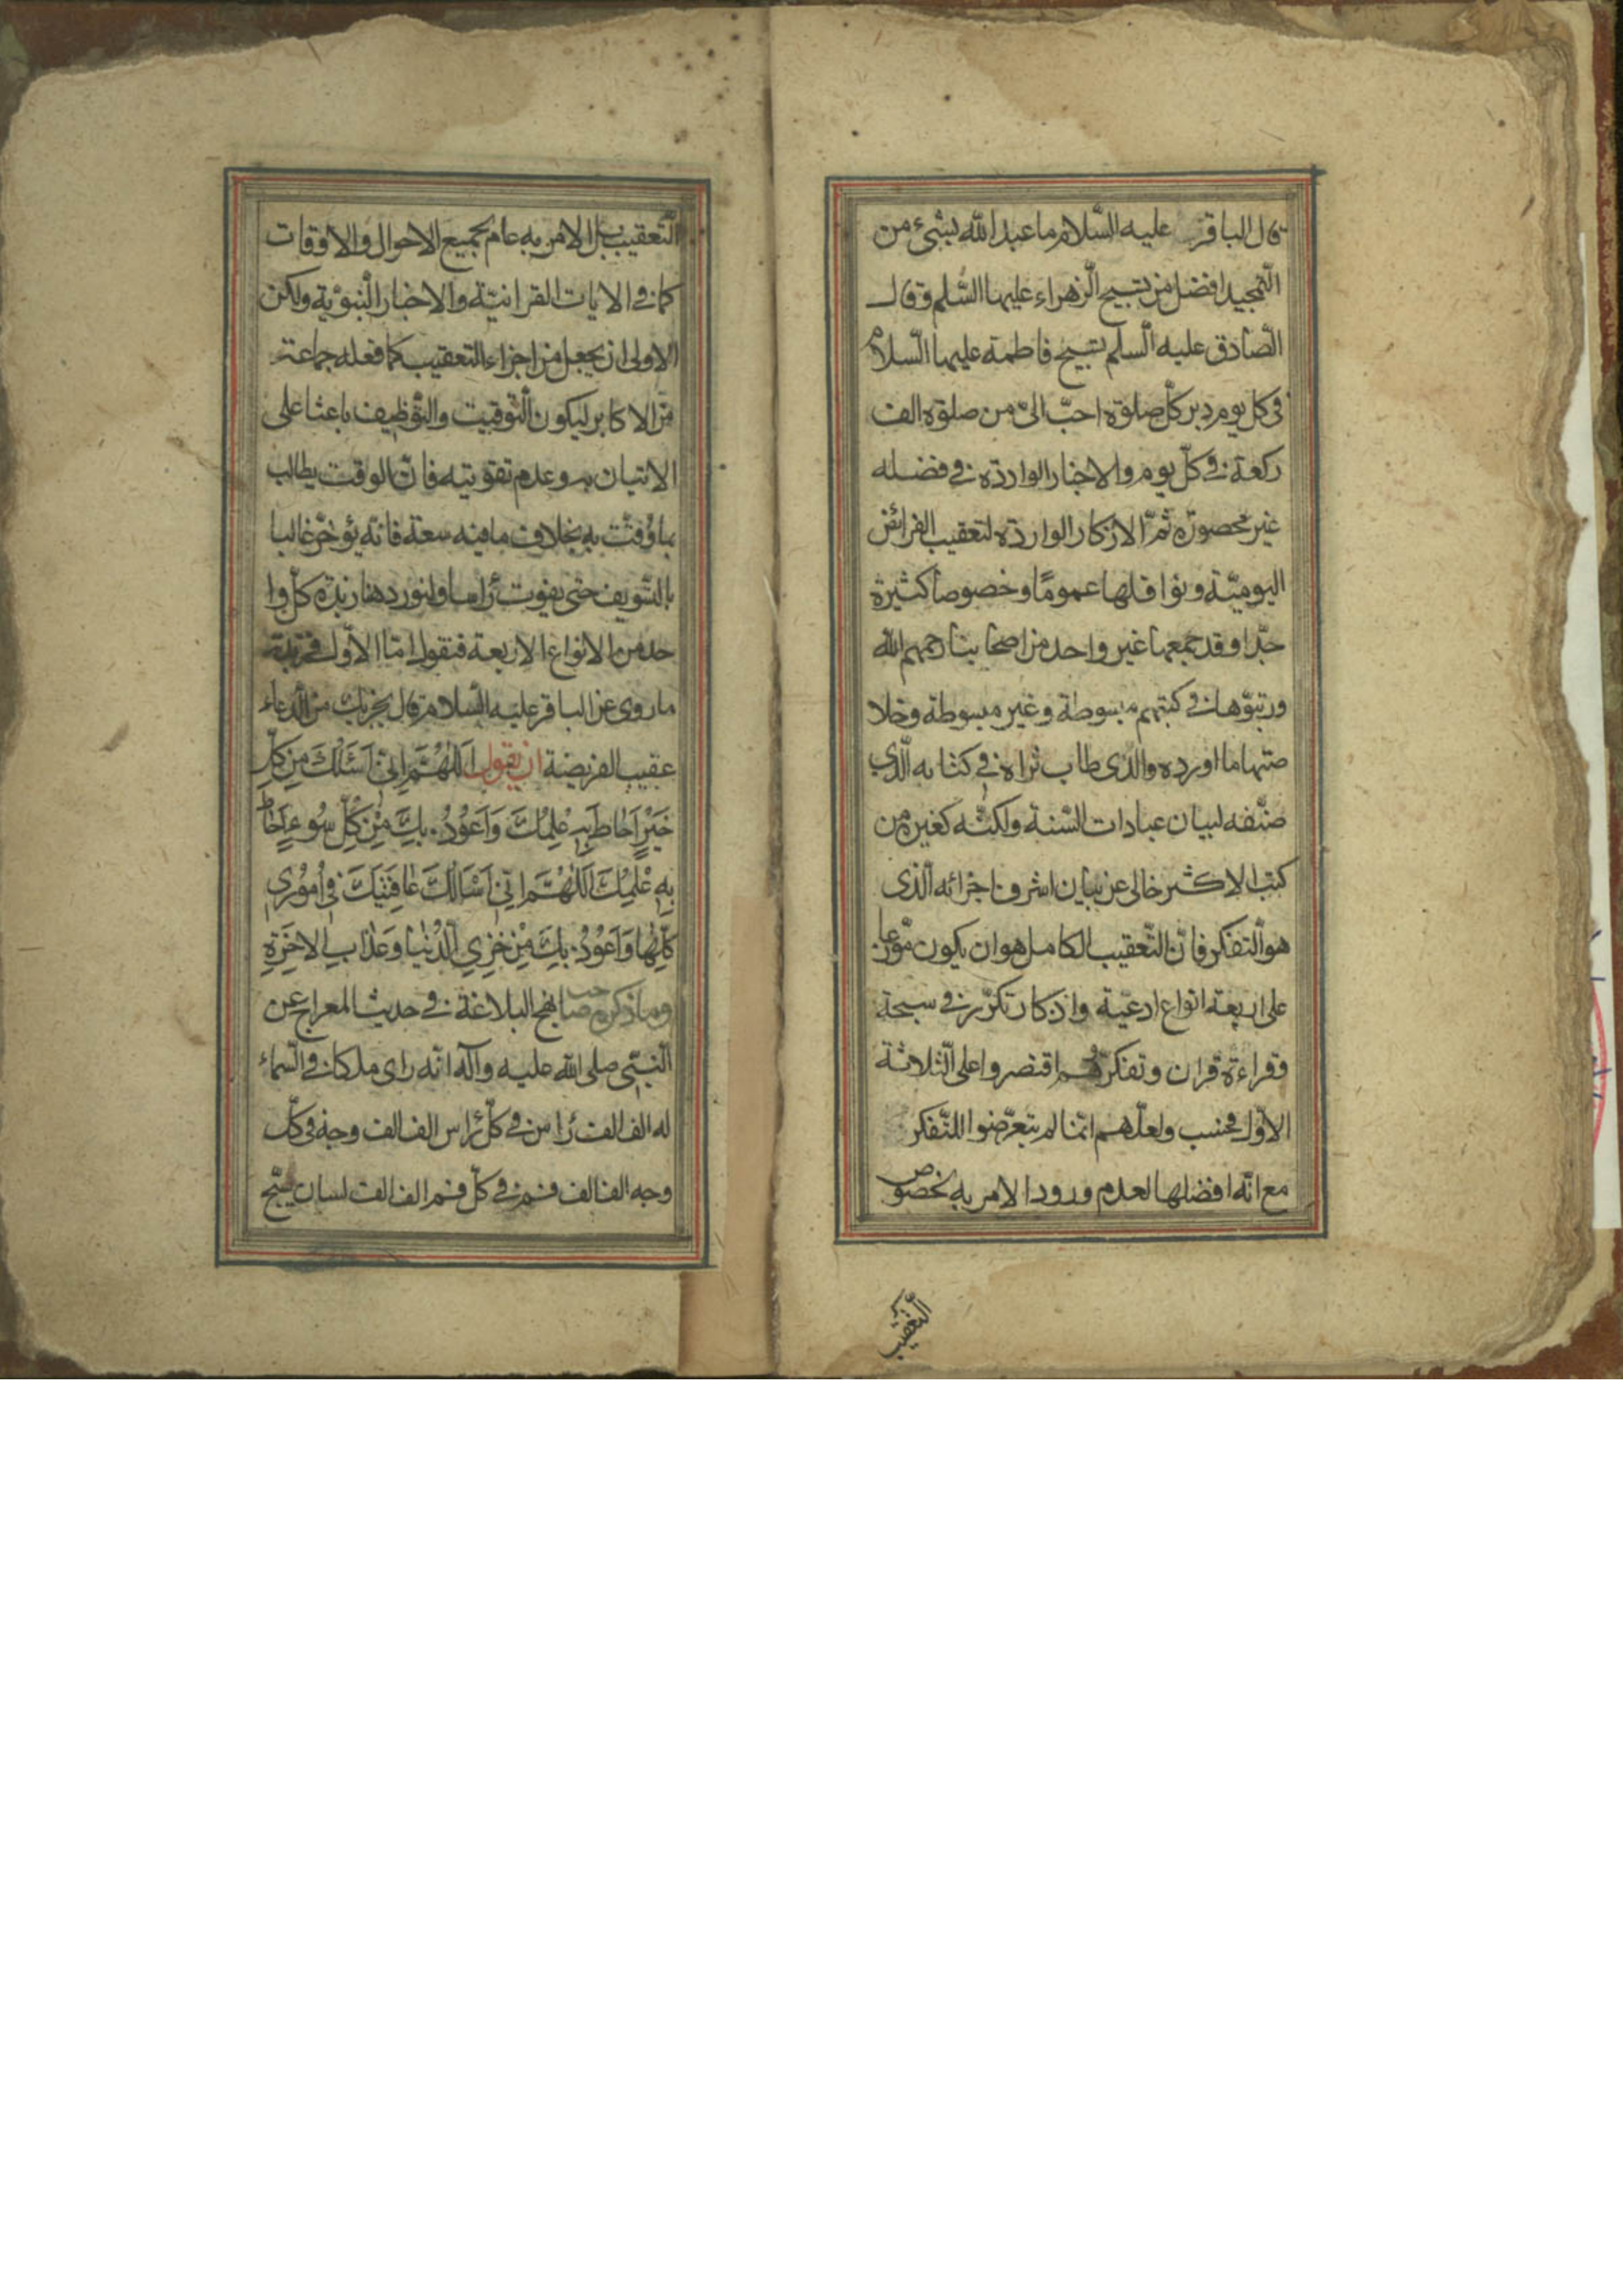 قال الباقر عليه السّلام ما عبد اللّه بشیء من
التّمجید افضل من تسبیح الزّهراء علیها السّلم و قال
الصّادق علیه السّلم تسبیح فاطمة علیها السّلام
فی کل یوم دبر کلّ صلوة احبّ الیّ من صلوة الف
رکعة فی کلّ یوم و الاخبار الواردة فی فضله
غیر محصورة ثمّ الاذکار الواردة لتعقیب الفرائض
الیومیّة و نوافلها عموماً و خصوصا کثیرة
جدّا و قد جمعها غیر واحد من اصحابنا رحمهم اللّه
و رتبوها فی کتبهم مبسوطة و غیر مبسوطة و خلا
صتها ما اورده والدی طاب ثراه فی کتابه الّذی
صنّفه لبیان عبادات السّنة و لکنّه کغیره من
کتب الاکثر خالی عن بیان اشرف اجزائه الّذی
هو التفکر فانّ التّعقیب الکامل هو ان یکون موّزعا
علی اربعة انواع ادعیّة و اذکار تکرّر فی سبحة
و قراءة قران و تفکر و هم اقتصروا علی الثّلاثة
الاوّل فحسب و لعلّهم انّما لم یتعرّضوا للتّفکر
مع انّه افضلها لعدم ورود الامر به بخصوص
التّعقیب
التّعقیب بل الامر به عام بجمیع الاحوال و الاوقات
کما فی الایات القرانیّة و الاخبار النّبوّیة و لکن
الاولی ان یجعل من اجزاء التعقیب کما فعله جماعة
من الاکابر لیکون التّوقیت و التّوظیف باعثا علی
الاتیان به و عدم تفویته فانّ الوقت یطالب
بما وُقّت به بخلاف ما فیه سعة فانّه یؤخّر غالبا
بالتّسویف حتی یفوت رٔاسا و لنورد هنا زبدة کلّ وا
حد من الانواع الاربعة فنقول امّا الاوّل فزبدة
ما روی عن الباقر علیه السّلام قال یجزیک من الدّعاء
عقیب الفریضة ان یقول اَللّهُمَّ اِنّی اَسْئَلُکَ مِن کُلِّ
خَیْرٍ اَحٰاطَ بِهِ عِلْمُکَ وَ اَعُوذُ بِکَ مِنْ کُلِّ سُوءٍ اَحٰاطَ
بِهِ عِلْمُکَ اَللّٰهُمَّ اِنّی اَسْاَلُکَ عٰافِیَتَکَ فی اُمُوری
کُلِّهٰا وَ اَعُوذُ بِکَ مِنْ خِزیِ الدُّنْیٰا وَ عَذابِ الاخِرَةِ
و ما ذکره صاحب نهج البلاغة فی حدیث المعراج عن
النّبیّ صلی اللّه علیه و آله انّه رای ملکا فی السّماء
له الف الف رٔاس فی کلّ رٔاس الف الف وجه فی کلّ
وجه الف الف فم فی کلّ فم الف الف لسان یسبّح